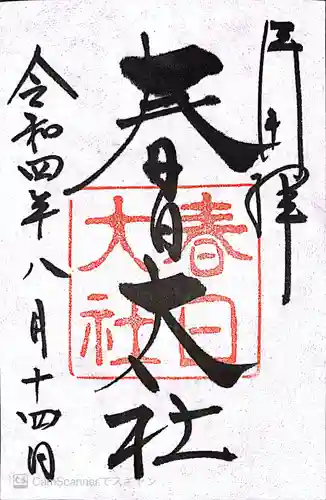 奉拝
春日大社
春日
大社
令和四年八月十四日
CamScannerでスキャン